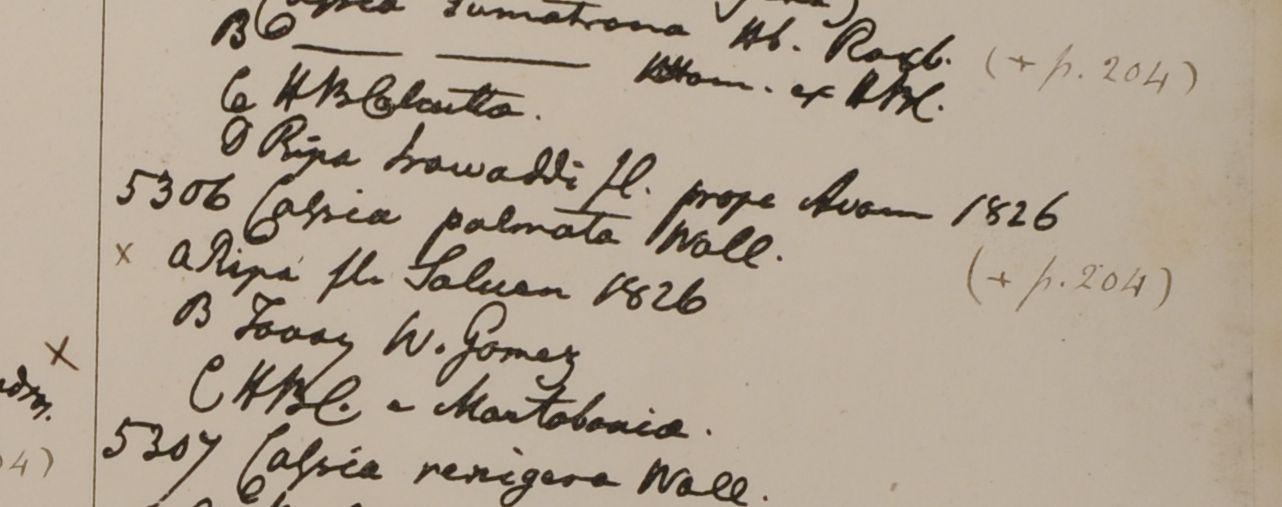 Cassia Sumatrana Hb. Roxb. (+ p. 204)
B ___ ___ Ham. ex HBC.
C HBCalcutta.
D Ripa Irawaddi fl. prope Avam 1826
5306 Cassia palmata Wall.
(+ p. 204)
× a Ripa fl. Saluen 1826
B Tavoy W. Gomez
C HBC. e Martabania.
×
5307 Cassia renigera Wall.
04)